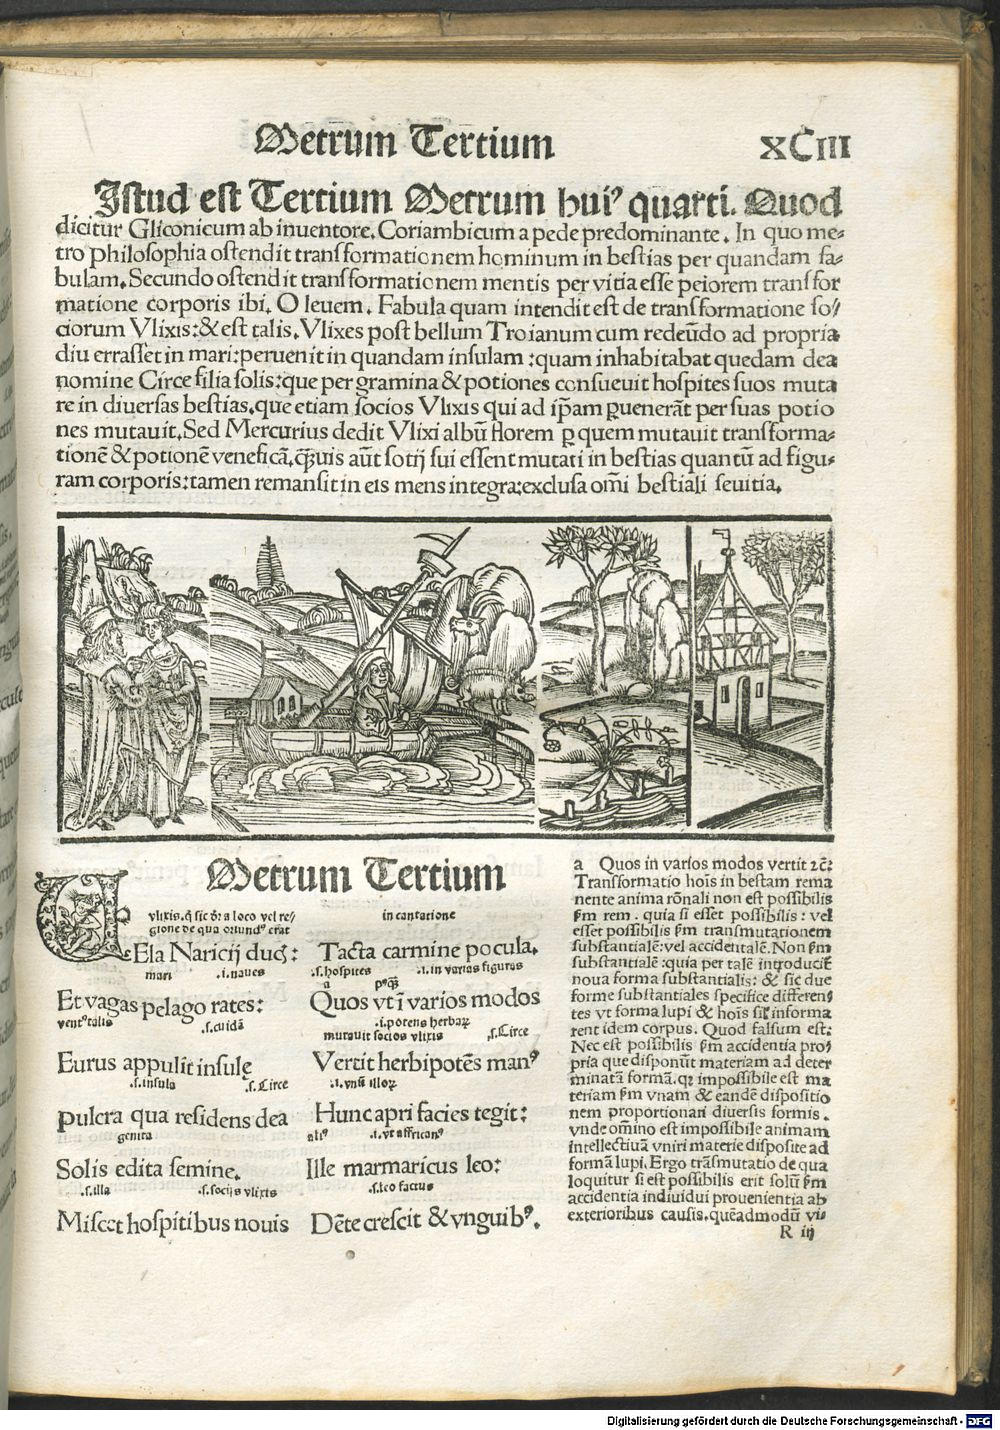 Metrum Tertium XCIII
Istud est Tertium Metrum huiꝰ quarti. Quod
dicitur Gliconicum ab inuentore. Coriambicum a pede predominante. In quo me⸗
tro philosophia ostendit transformationem hominum in bestias per quandam fa⸗
bulam. Secundo ostendit transformationem mentis per vitia esse peiorem transfor
matione corporis ibi. O leuem. Fabula quam intendit est de transformatione so/
ciorum Vlixis: & est talis. Vlixes post bellum Troianum cum redeūdo ad propria
diu errasset in mari: peruenit in quandam insulam: quam inhabitabat quedam dea
nomine Circe filia solis: que per gramina & potiones consueuit hospites suos muta
re in diuersas bestias. que etiam socios Vlixis qui ad ip̄am ꝑuenerāt per suas potio
nes mutauit. Sed Mercurius dedit Vlixi albū florem ꝑ quem mutauit transforma⸗
tionē & potionē veneficā. q̄ꝫuis aūt sotij sui essent mutati in bestias quantū ad figu⸗
ram corporis: tamen remansit in eis mens integra: exclusa om̄i bestiali seuitia.
Metrum Tertium
vlixis. q̄ sic dr̄ a loco vel re/
gione de qua oriundꝰ erat
VEla Naricij ducꝭ:
mari .i. naues
Et vagas pelago rates:
ventꝰ talis .s. cuidā
Eurus appulit insulę
.s. insula .s. Circe
Pulcra qua residens dea
genita
Solis edita semine.
.s. illa .s. socijs vlixis
Miscet hospitibus nouis
incantatione
Tacta carmine pocula.
.s. hospites .i. in varias figuras
a pꝰqꝫ
Quos vt ī varios modos
.i. potens herbaꝝ
mutauit socios vlixis .s. Circe
Vertit herbipotēs manꝰ
.i. vnū illoꝝ
Hunc apri facies tegit:
aliꝰ .i. vt affricanꝰ
Ille marmaricus leo:
.s. leo factus
Dēte crescit & vnguibꝰ.
a Quos in varios modos vertit ⁊c̄:
Transformatio hoīs in bestam rema
nente anima rōnali non est possibilis
ẜm rem. quia si esset possibilis: vel
esset possibilis ẜm transmutationem
substantialē: vel accidentalē. Non ẜm
substantialē: quia per talē introducit̄
noua forma substantialis: & sic due
forme substantiales specifice differen
tes vt forma lupi & hoīs sil̄ informa
rent idem corpus. Quod falsum est.
Nec est possibilis ẜm accidentia pro/
pria que disponūt materiam ad deter
minatā formā. qꝛ impossibile est ma
teriam ẜm vnam & eandē dispositio
nem proportionari diuersis formis.
vnde om̄ino est impossibile animam
intellectiuā vniri materie disposite ad
formā lupi. Ergo trāsmutatio de qua
loquitur si est possibilis erit solū ẜm
accidentia indiuidui prouenientia ab
exterioribus causis. quēadmodū vi⸗
R iij
Digitalisierung gefördert durch die Deutsche Forschungsgemeinschaft - DFG